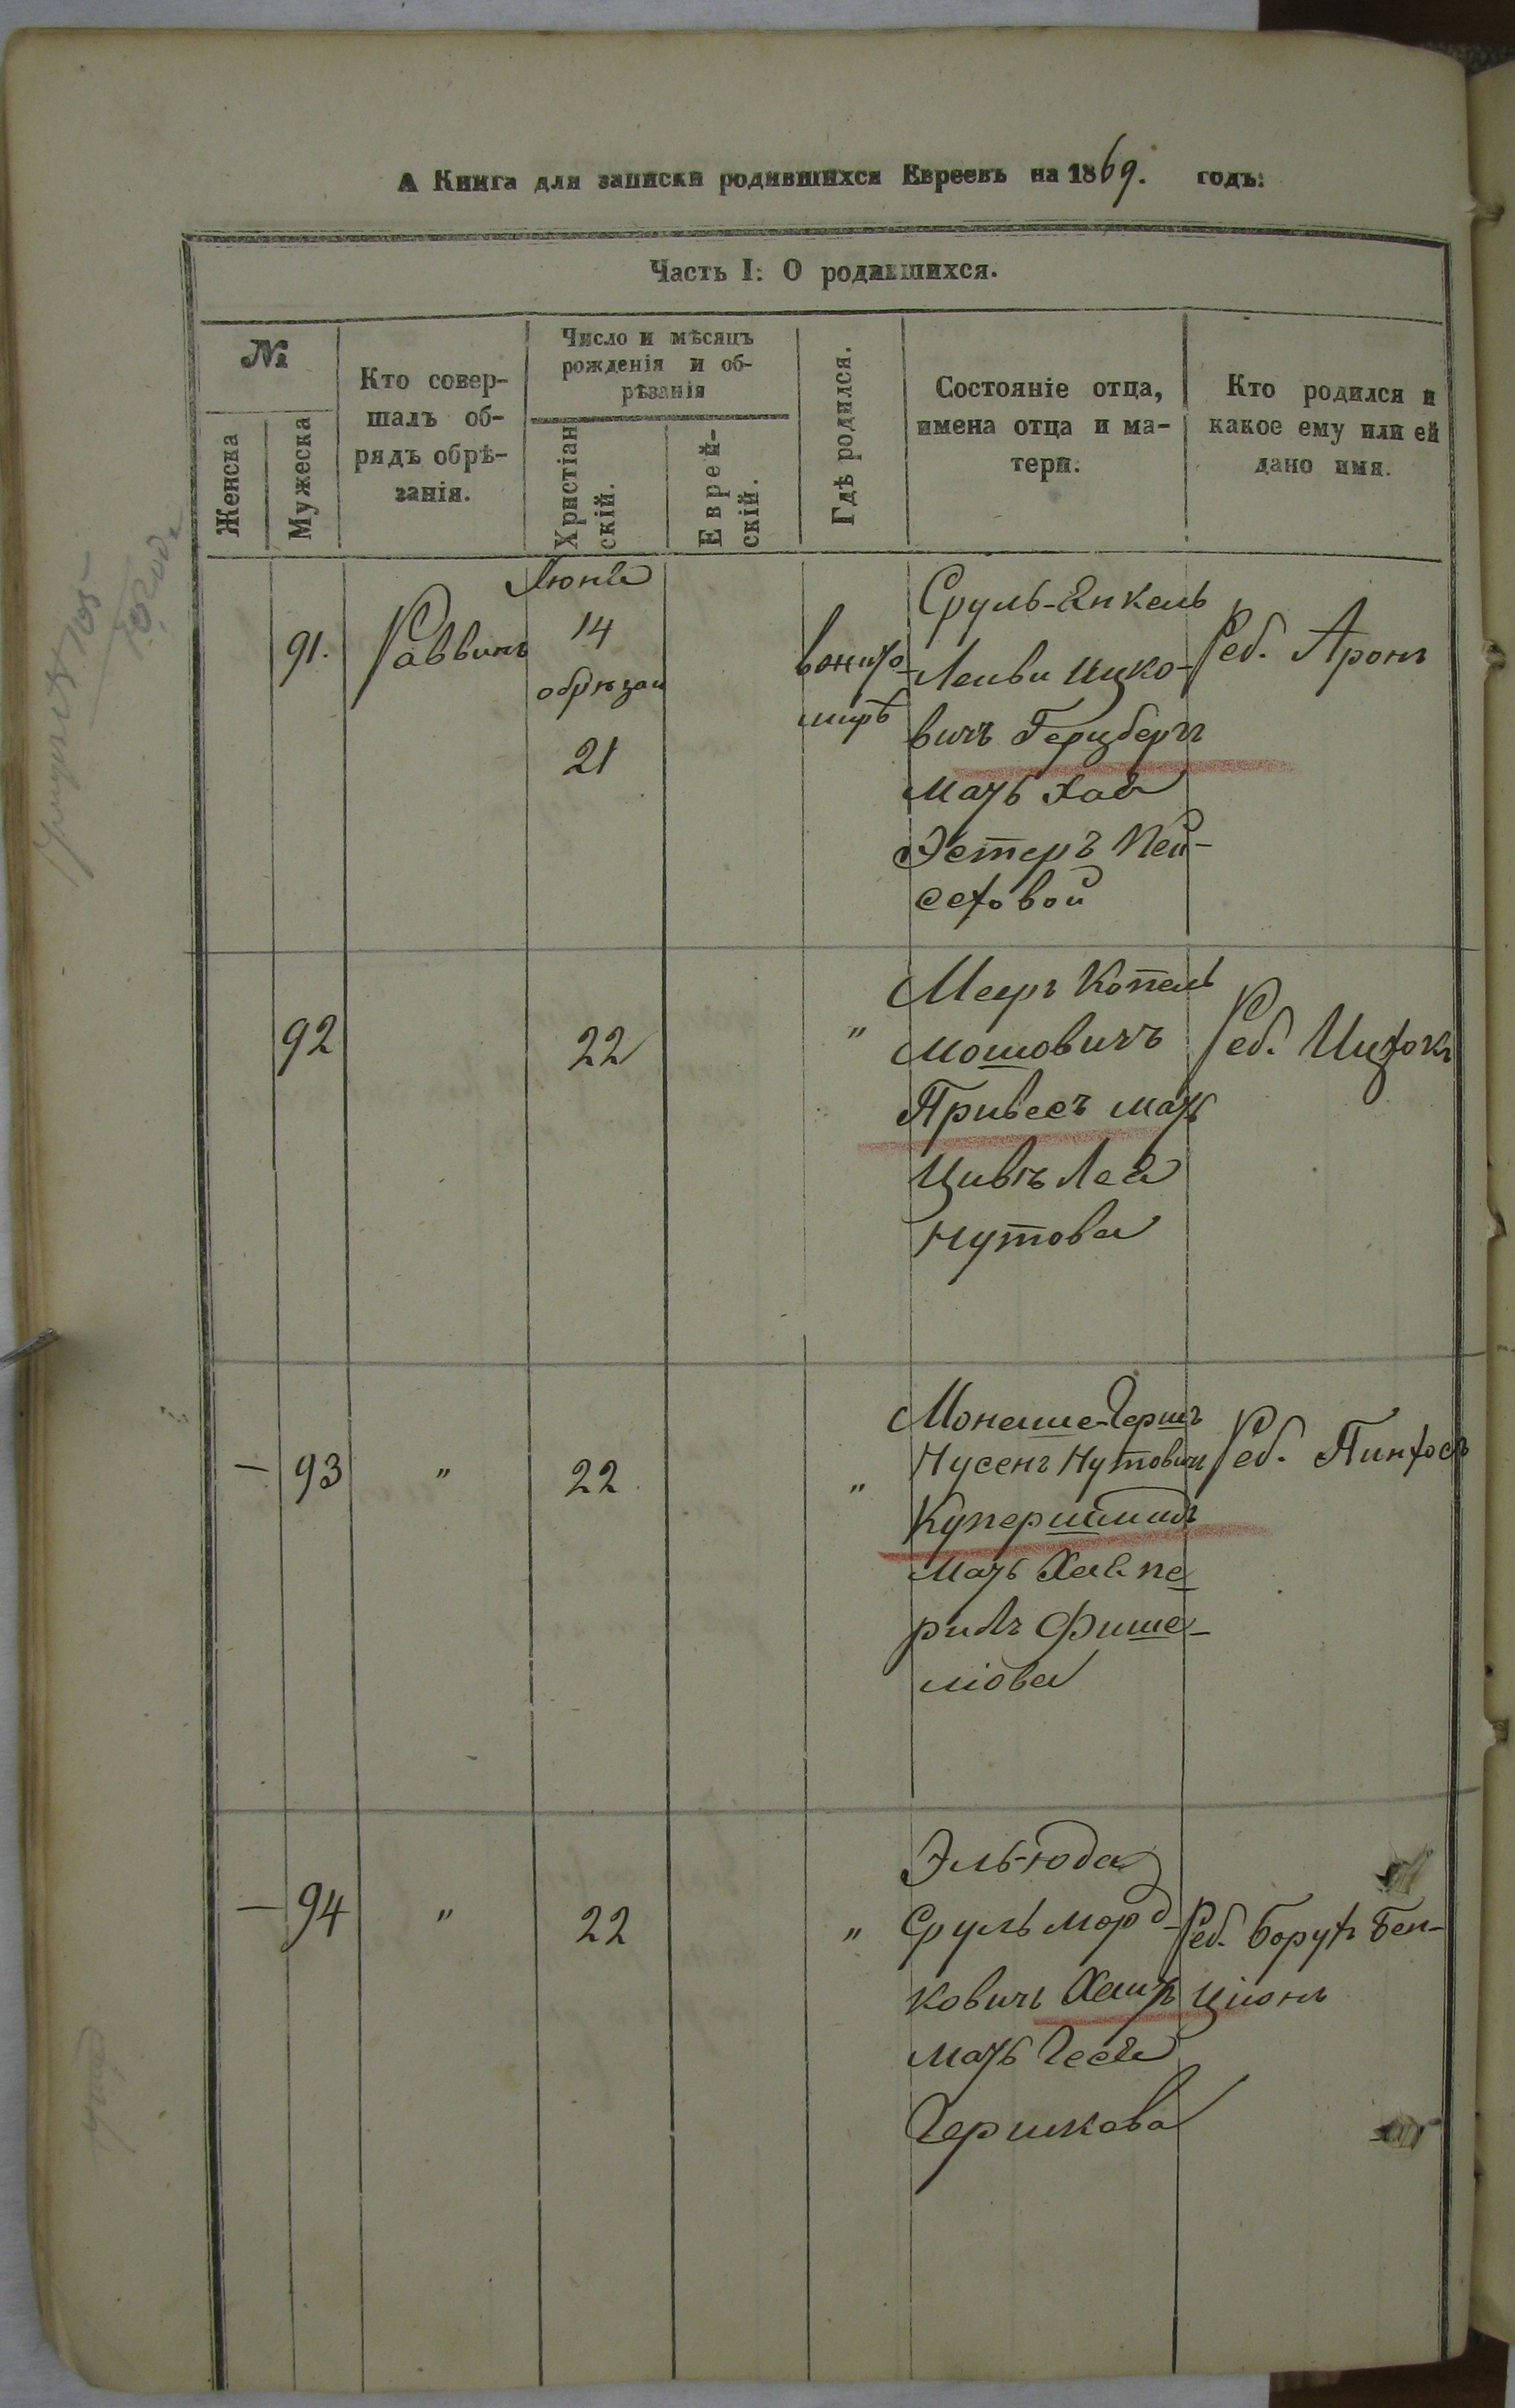 А Книга для записки родившихся Евреевъ на 1869. годъ:
Часть I: О родившихся.
№
Женска
Мужеска
Кто совер-
шалъ об-
рядъ обрѣ-
занія.
Число и мѣсяцъ
рожденія и об-
рѣзанія
Христіан
скій.
Еврей-
скій.
Гдѣ родился.
Состояніе отца,
имена отца и ма-
тери.
Кто родился и
какое ему или ей
дано имя.
91.
Раввинъ
Июня
14
обрѣзан
21
Сруль-Янкель
Лейви Ицко-
вичъ Герцбергъ
мать Хая
Эстеръ Пей-
сахова
Реб. Аронъ
92
22
"
Меиръ Копель
Мошовичъ
Привесъ мать
Цивъ Лея
Нутова
Реб. Ицхокъ
— 93
"
22
"
Монаше-Гершъ
Нусенъ Нутовичъ
Купершмидъ
мать Хая пе
рилъ Фише-
ліова
Реб. Пинхосъ
— 94
"
22
"
Эль-Юда
Сруль Морд-
ковичъ
мать Гося
Гершкова
Реб. Борухъ Бен-
Ціонъ